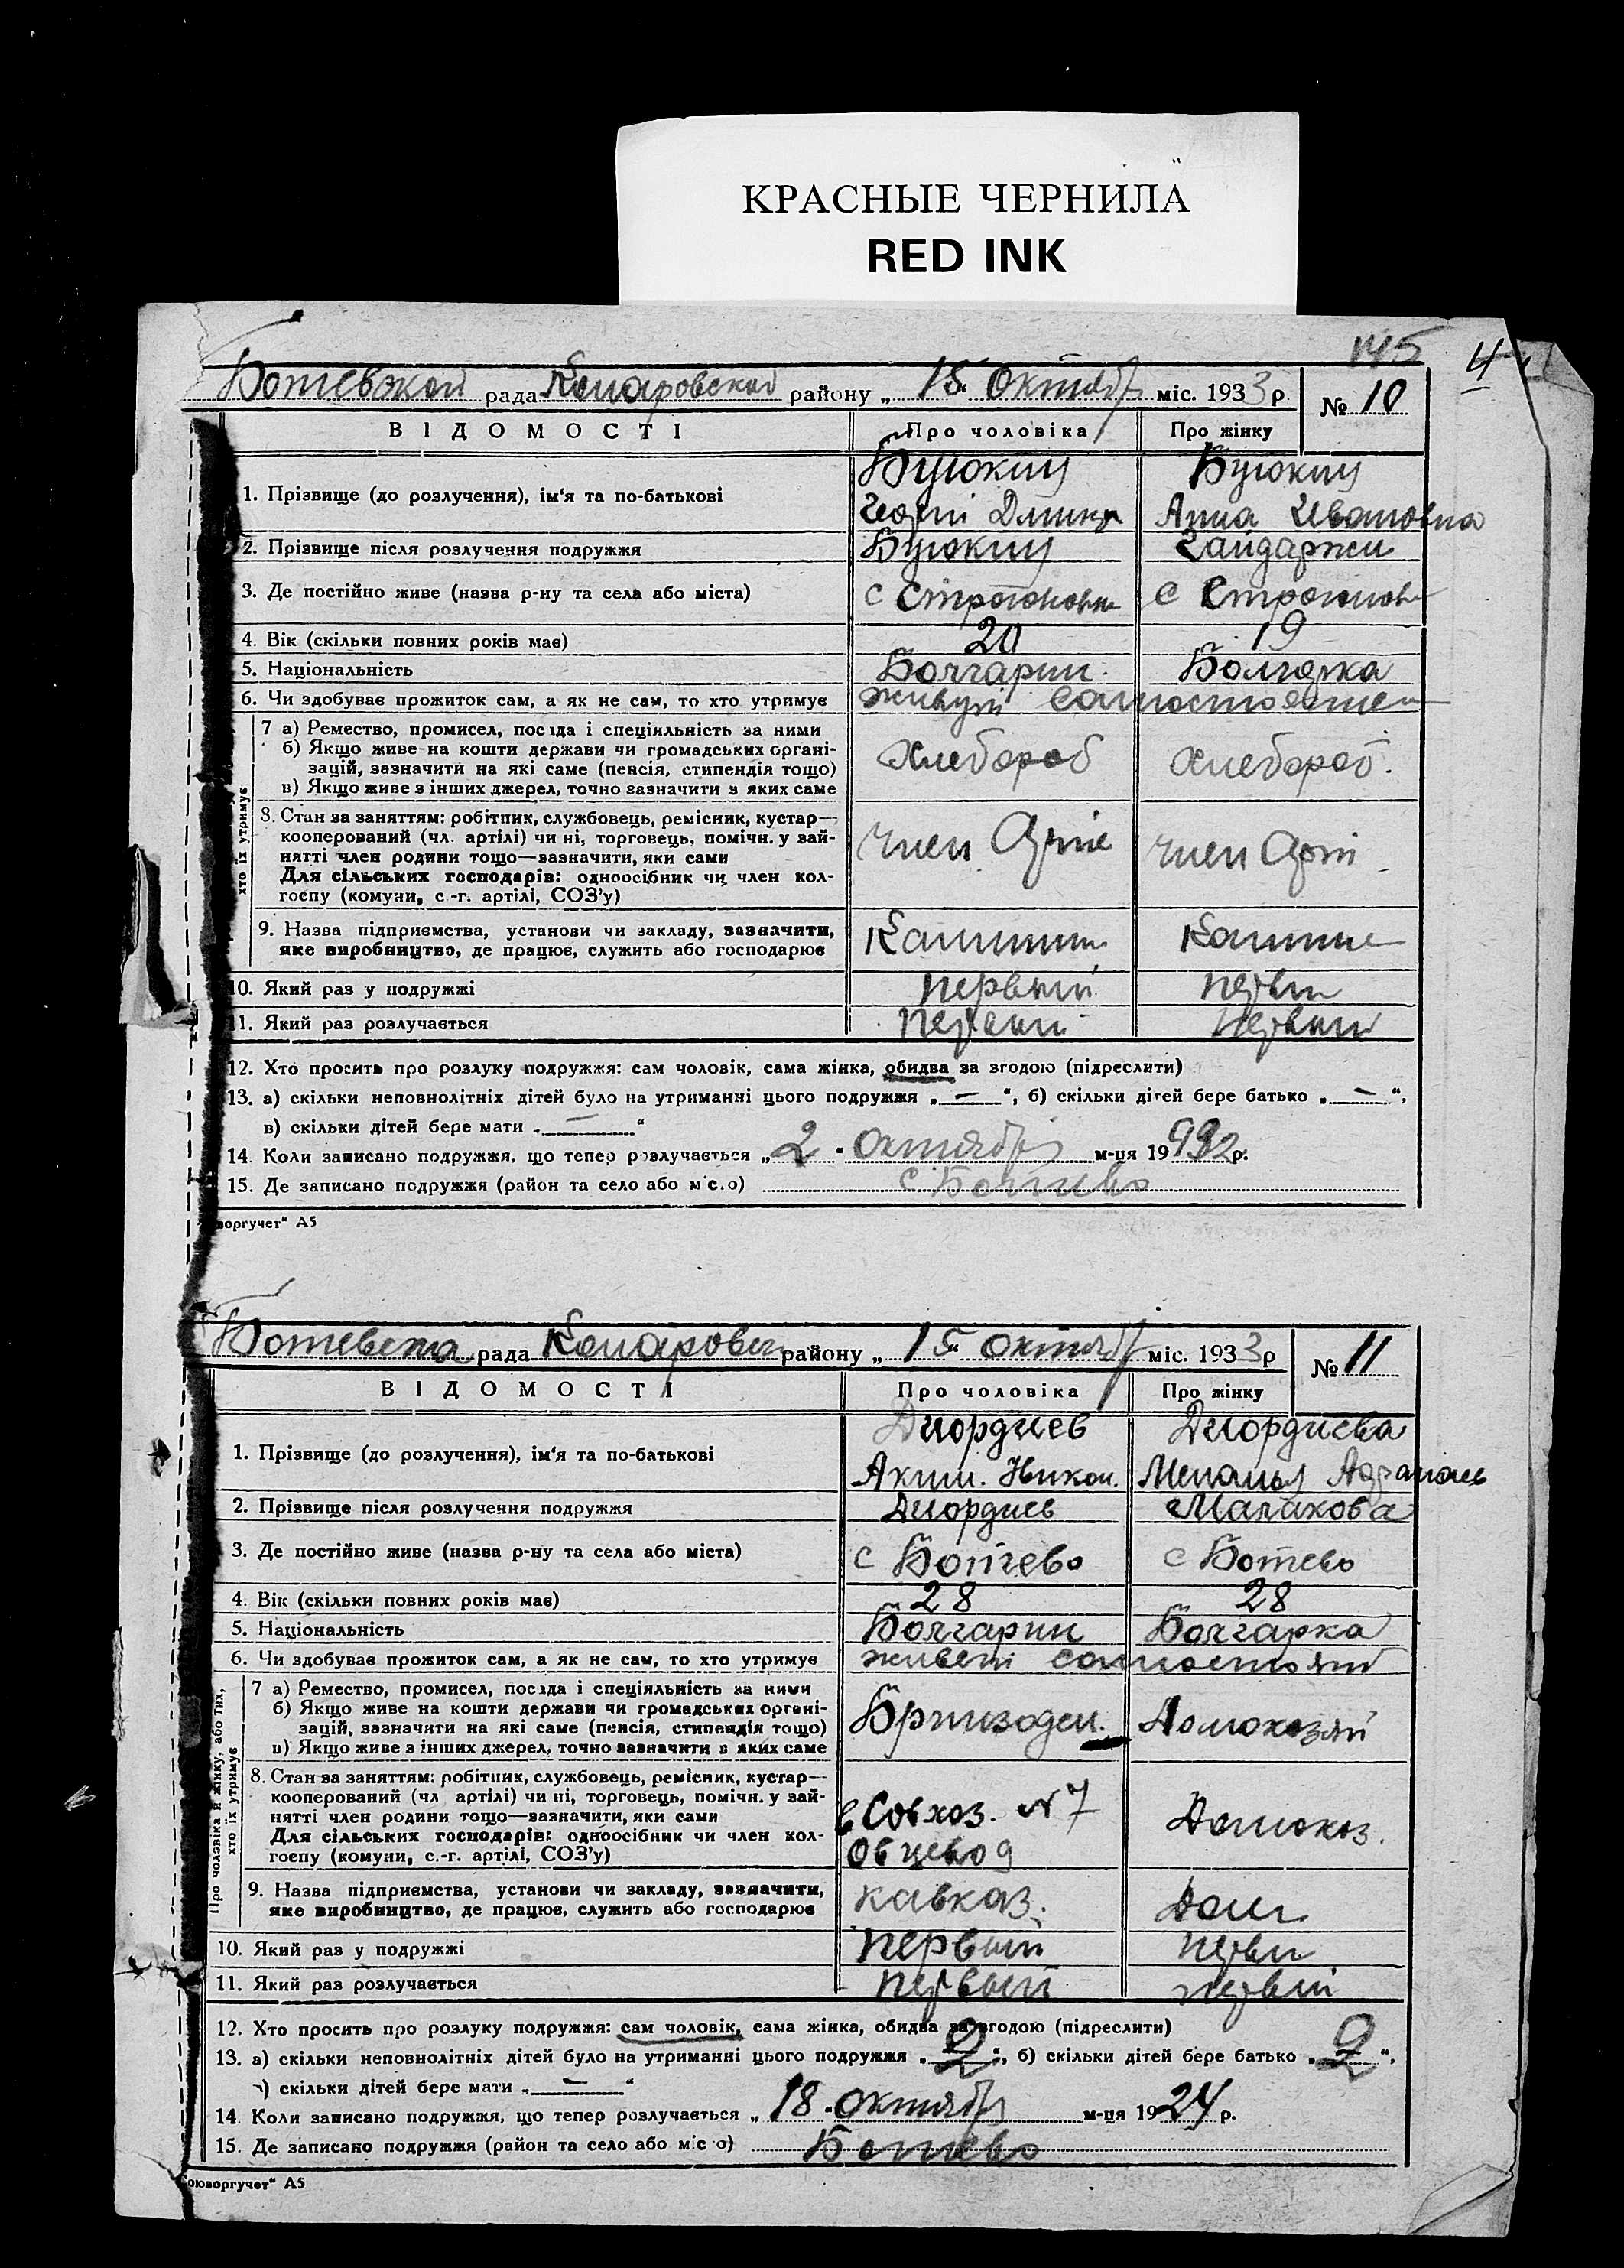 КРАСНЫЕ ЧЕРНИЛА
RED INK
145 4
Ботевской рада Комаровской району „ 15 “ Октябр міс. 1933 р. № 10
ВІДОМОСТІ Про чоловіка Про жінку
1. Прізвище (до розлучення), ім‘я та по-батькові Буюкли Буюкли
Анна Ивановна
2. Прізвище після розлучення подружжя Буюкли Гайдаржи
3. Де постійно живе (назва р-ну та села або міста) с Строгоновк с Строгонов
4. Вік (скільки повних років має) 20 19
5. Національність Болгарин Болгарка
6. Чи здобуває прожиток сам, а як не сам, то хто утримує живут самостоятел
хто їх утримує
7 а) Ремество, промисел, посада і спеціяльність за ними
б) Якщо живе на кошти держави чи громадських органі-
зацій, зазначити на які саме (пенсія, стипендія тощо) Хлебороб хлебороб.
в) Якщо живе з інших джерел, точно зазначити з яких саме
8. Стан за заняттям: робітник, службовець, ремісник, кустар—
кооперований (чл. артілі) чи ні, торговець, помічн. у зай- член Арте член Арт
нятті член родини тощо—зазначити, яки сами
Для сільських господарів: одноосібник чи член кол-
госпу (комуни, с.-г. артілі, СОЗ’у)
9. Назва підприємства, установи чи закладу, зазначити,
яке виробництво, де працює, служить або господарює
10. Який раз у подружжі первый первы
11. Який раз розлучається первый первый
12. Хто просить про розлуку подружжя: сам чоловік, сама жінка, обидва за згодою (підреслити)
13. а) скільки неповнолітніх дітей було на утриманні цього подружжя „ — “, б) скільки дітей бере батько „ — “,
в) скільки дітей бере мати „ — “
14. Коли записано подружжя, що тепер розлучається „ 2 “ Октябр м-ця 19 932 р.
15. Де записано подружжя (район та село або місто) с Ботиево
воргучет“ А5
рада Комаровск району „ 15 “ Октябр міс. 1933 р № 11
ВІДОМОСТІ Про чоловіка Про жінку
1. Прізвище (до розлучення), ім‘я та по-батькові Диордиев Диордиева
Аким. Никол.
2. Прізвище після розлучення подружжя Диордиев Малахова
3. Де постійно живе (назва р-ну та села або міста) с Ботево с Ботево
4. Вік (скільки повних років має) 28 28
5. Національність Болгарин Болгарка
6. Чи здобуває прожиток сам, а як не сам, то хто утримує живет самостоят
Про чоловіка й жінку, або тих, хто їх утримує
7 а) Ремество, промисел, посада і спеціяльність за ними
б) Якщо живе на кошти держави чи громадських органі-
зацій, зазначити на які саме (пенсія, стипендія тощо) Бригадел. Домохозяй
в) Якщо живе з інших джерел, точно зазначити з яких саме
8. Стан за заняттям: робітник, службовець, ремісник, кустар—
кооперований (чл. артілі) чи ні, торговець, помічн. у зай- в Совхоз. № 7
нятті член родини тощо—зазначити, яки сами Домохоз.
Для сільських господарів: одноосібник чи член кол- Овцевод
госпу (комуни, с.-г. артілі, СОЗ’у)
9. Назва підприємства, установи чи закладу, зазначити, кавказ.
яке виробництво, де працює, служить або господарює
10. Який раз у подружжі первый первы
11. Який раз розлучається первый первый
12. Хто просить про розлуку подружжя: сам чоловік, сама жінка, обидва за згодою (підреслити)
13. а) скільки неповнолітніх дітей було на утриманні цього подружжя „ 2 “, б) скільки дітей бере батько „ 2 “,
в) скільки дітей бере мати „ — “
14. Коли записано подружжя, що тепер розлучається „ 18 “ Октябр м-ця 1924 р.
15. Де записано подружжя (район та село або місто) Ботиево
оюзоргучет“ А5